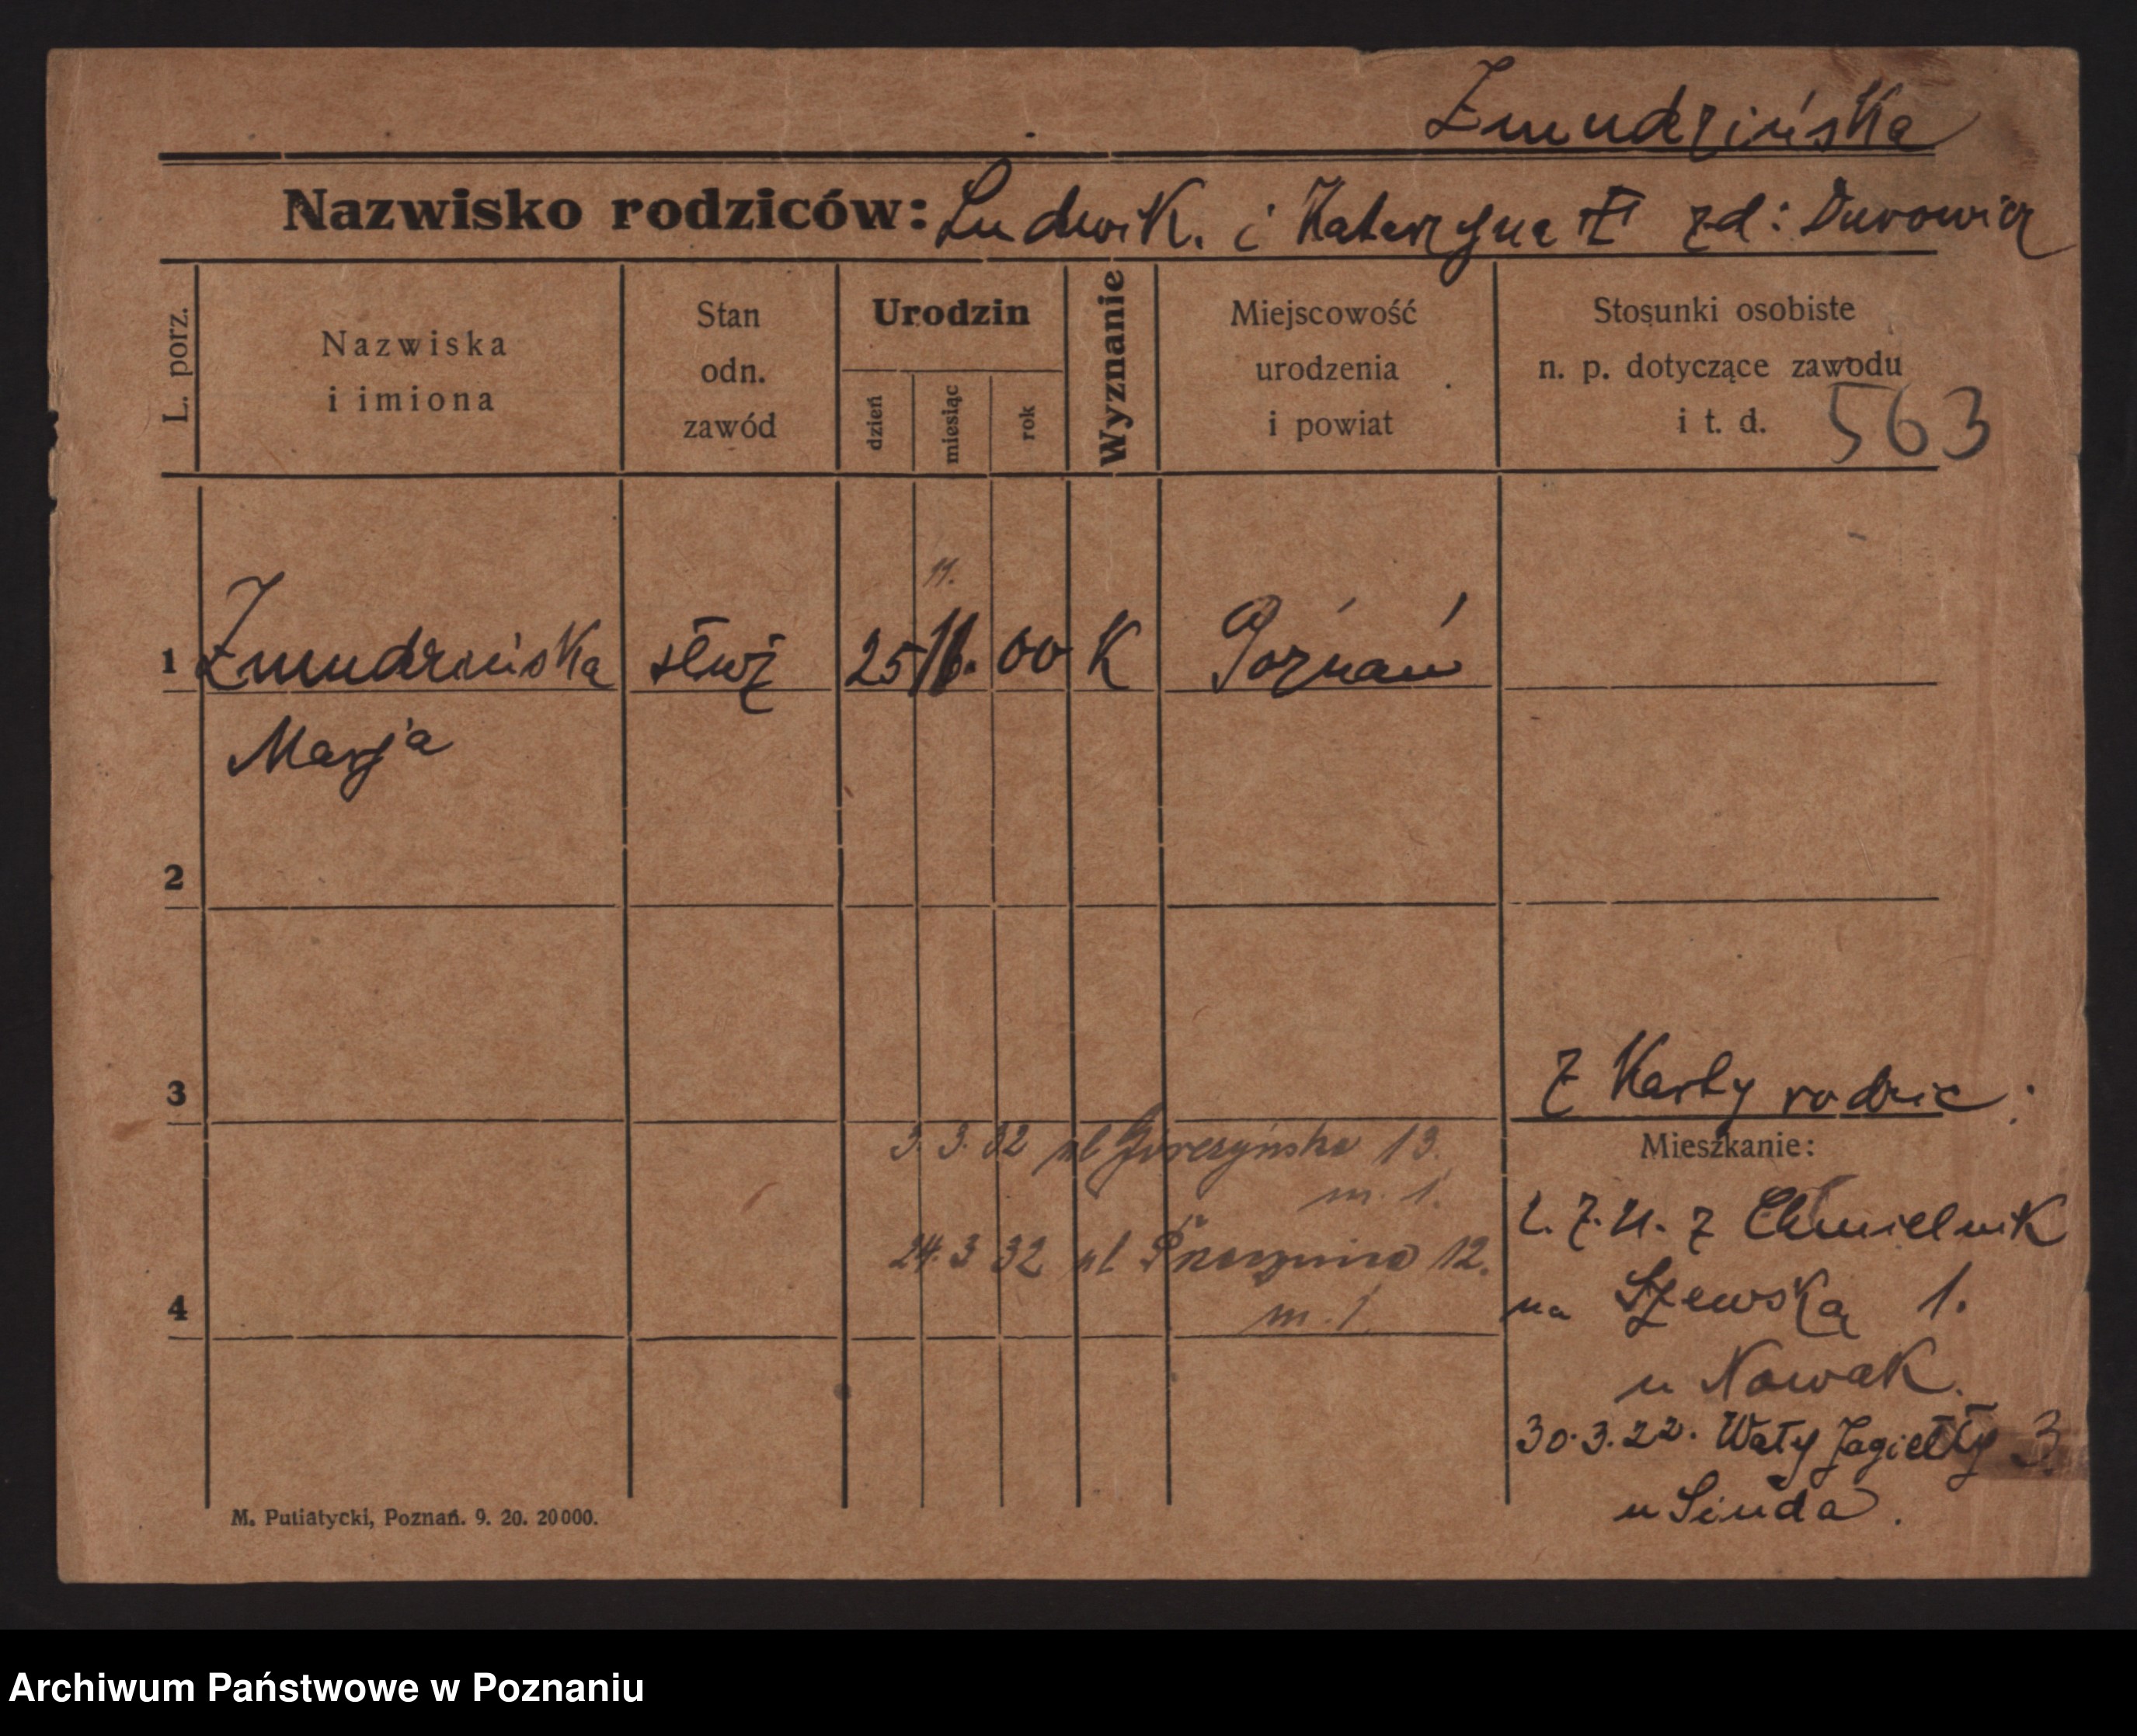 Żmudzińska
Nazwisko rodziców: Ludwik. i Katarzyna Ż zd: Durowicz
L. porz.
Nazwiska
i imiona
Stan
odn.
zawód
Urodzin
dzień
miesiąc
rok
Wyznanie
Miejscowość
urodzenia
i powiat
Stosunki osobiste
n. p. dotyczące zawodu
i t. d. 563
11.
1 Żmudzińska służ 25 00 K Poznań
Marja
2
3
Z Karty rodzic.
3. 3. 32 ul Górczyńska 13.
m. 1.
Mieszkanie:
2. 7. 21. z Chmielnik
24. 3 32 ul 12.
na Szewską 1.
4
m. 1.
u Nowak.
30. 3. 22. Wały Jagiełły 3
u Sinda.
M. Putiatycki, Poznań. 9. 20. 20000.
Archiwum Państwowe w Poznaniu